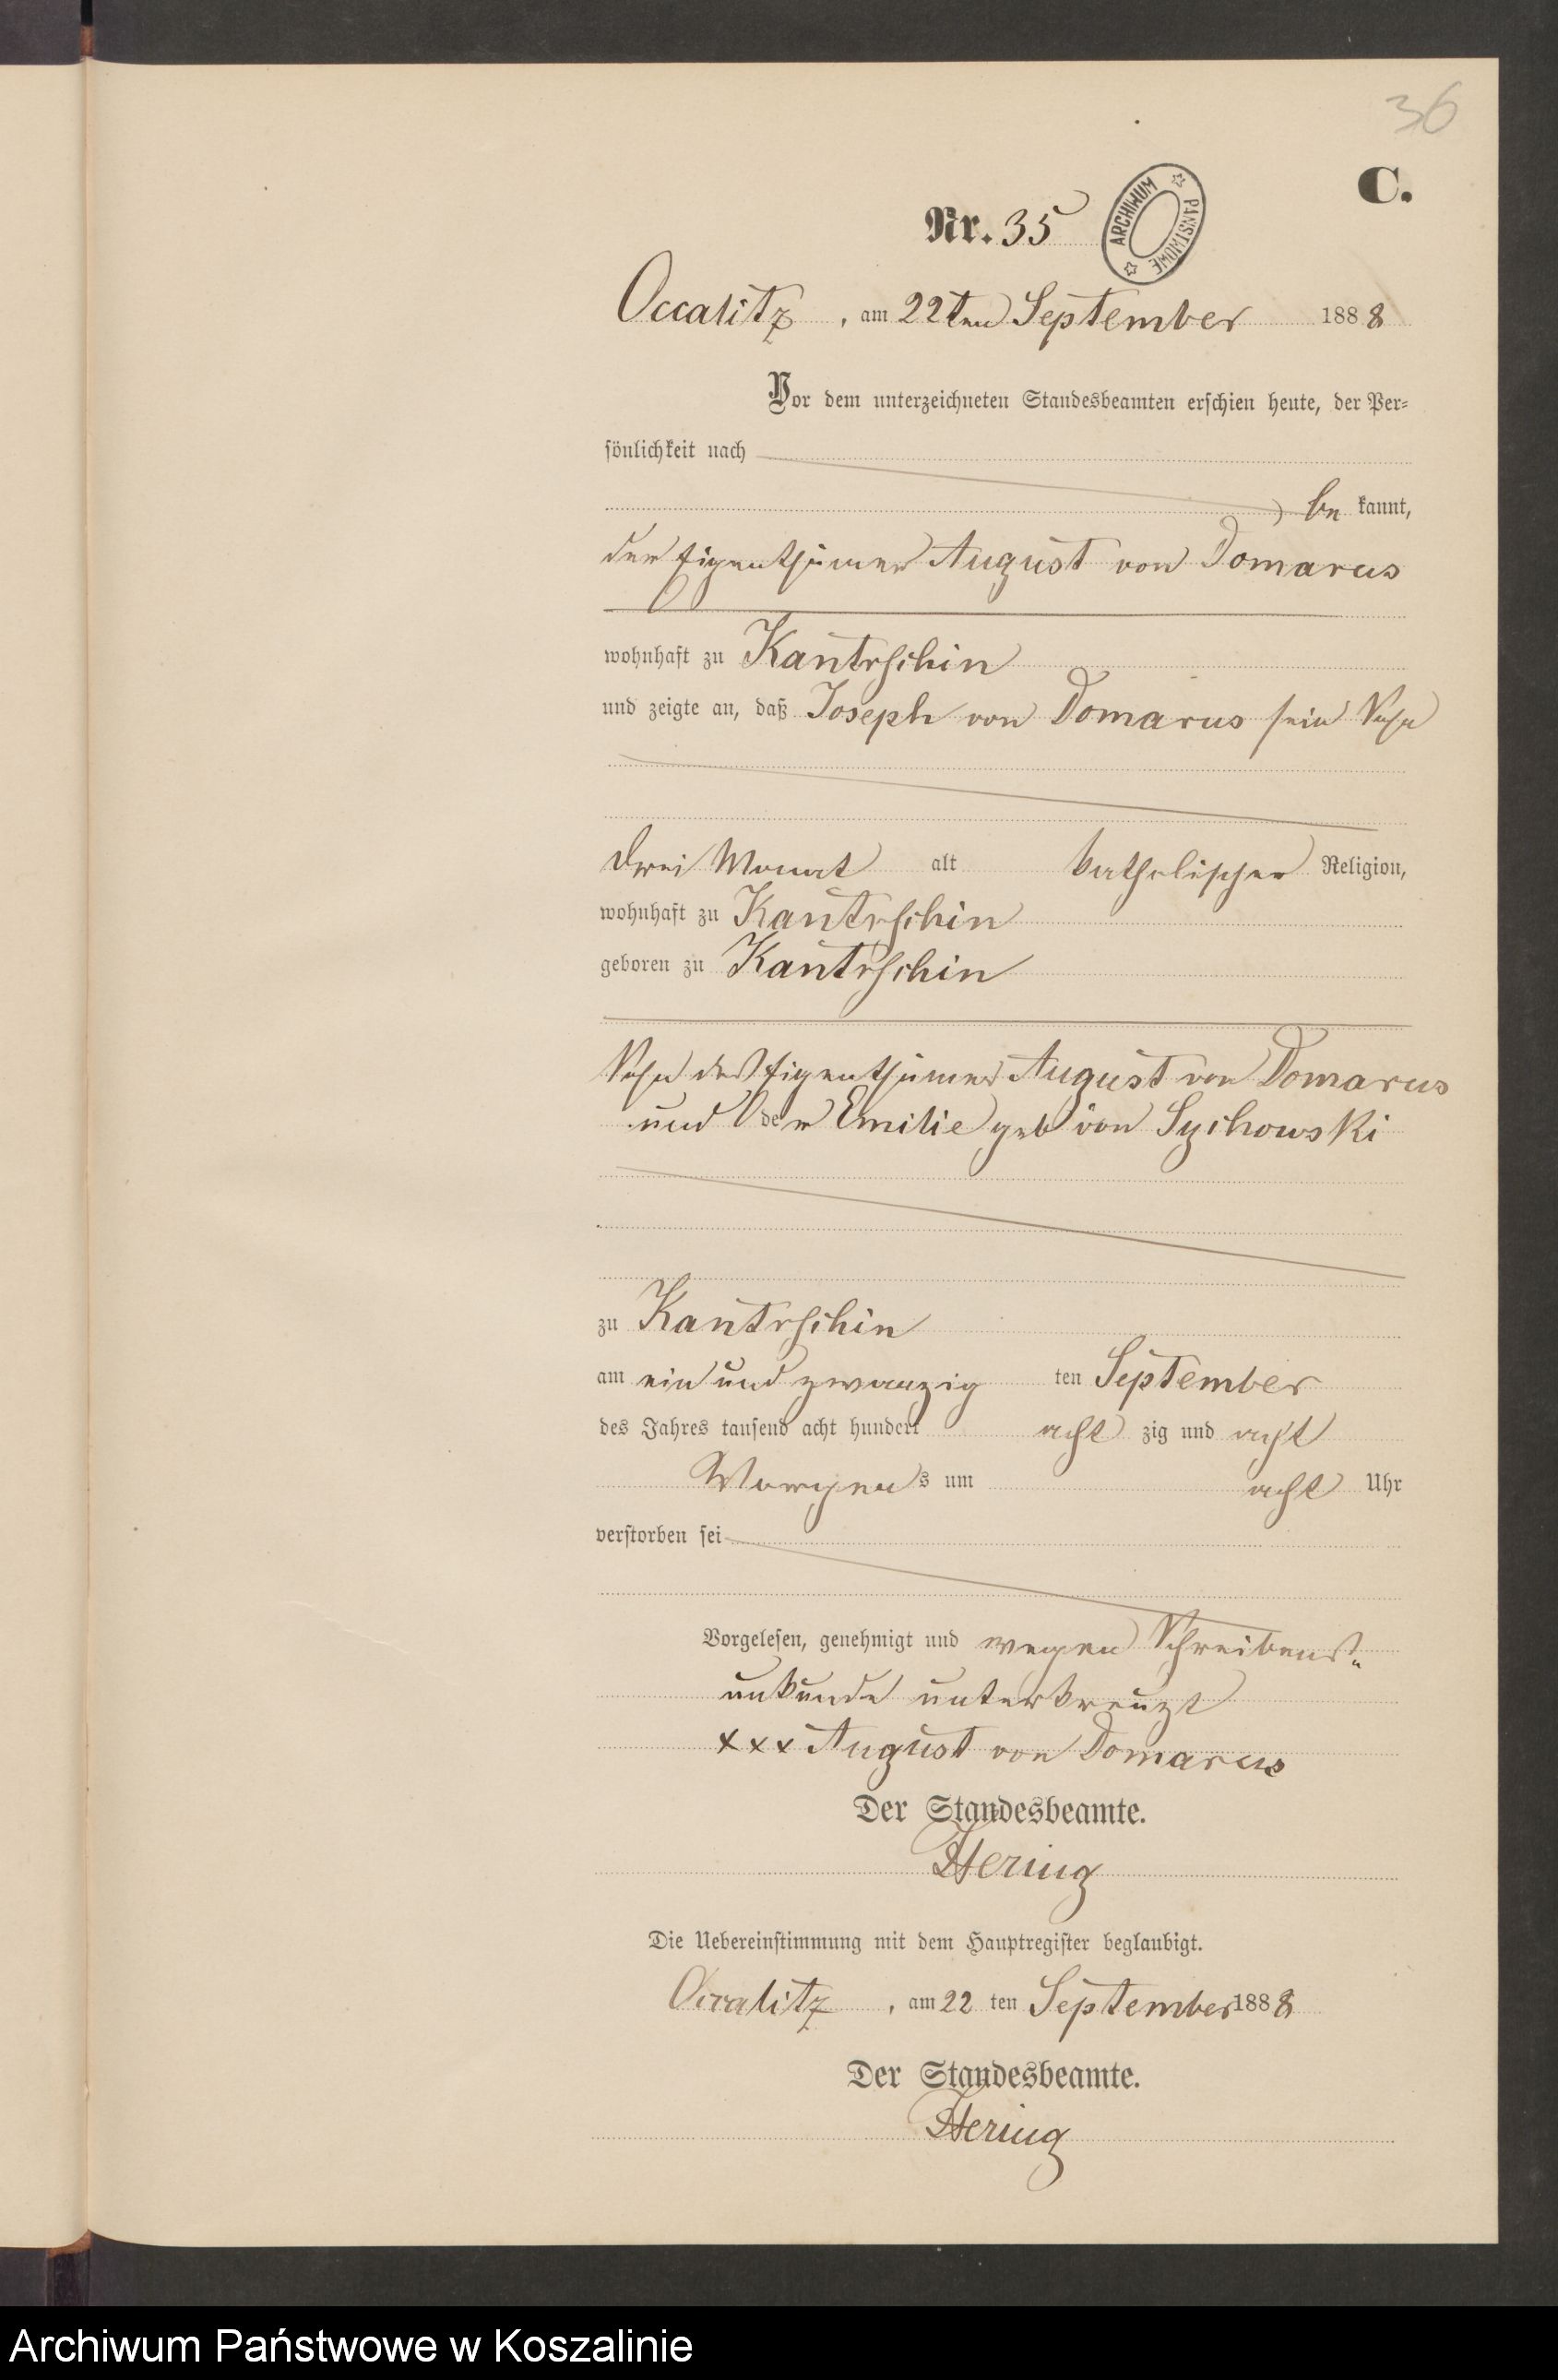 36
C.
Nr. 35
ARCHIWUM PAŃSTWOWE
Occalitz, am 22ten September 1888
Vor dem unterzeichneten Standesbeamten erschien heute, der Per-
sönlichkeit nach
be kannt,
der Eigenthümer August von Domarus
wohnhaft zu Kantrschin
und zeigte an, daß Joseph von Domarus sein Sohn
drei Monat alt katholischer Religion,
wohnhaft zu Kantrschin
geboren zu Kantrschin
Sohn des Eigenthümer August von Domarus
und der Emilie geb von Sychowski
zu Kantrschin
am ein und zwanzig ten September
des Jahres tausend acht hundert acht zig und acht
Morgens um acht Uhr
verstorben sei
Vorgelesen, genehmigt und wegen Schreibens-
unkunde unterkreuzt
xxx August von Domarus
Der Standesbeamte.
Hering
Die Uebereinstimmung mit dem Hauptregister beglaubigt.
Occalitz, am 22 ten September 1888
Der Standesbeamte.
Hering
Archiwum Państwowe w Koszalinie